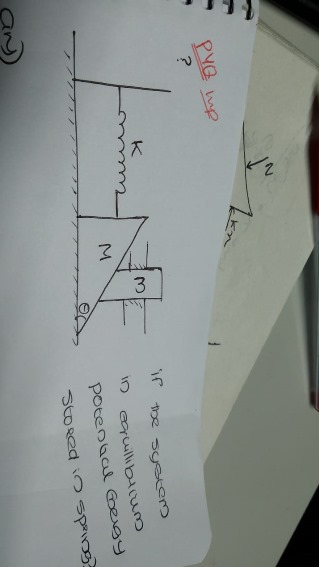 PYQ Imp
?
N
K
M
m
θ
if the system
in equilibrium
potential Energy
stored in spring?